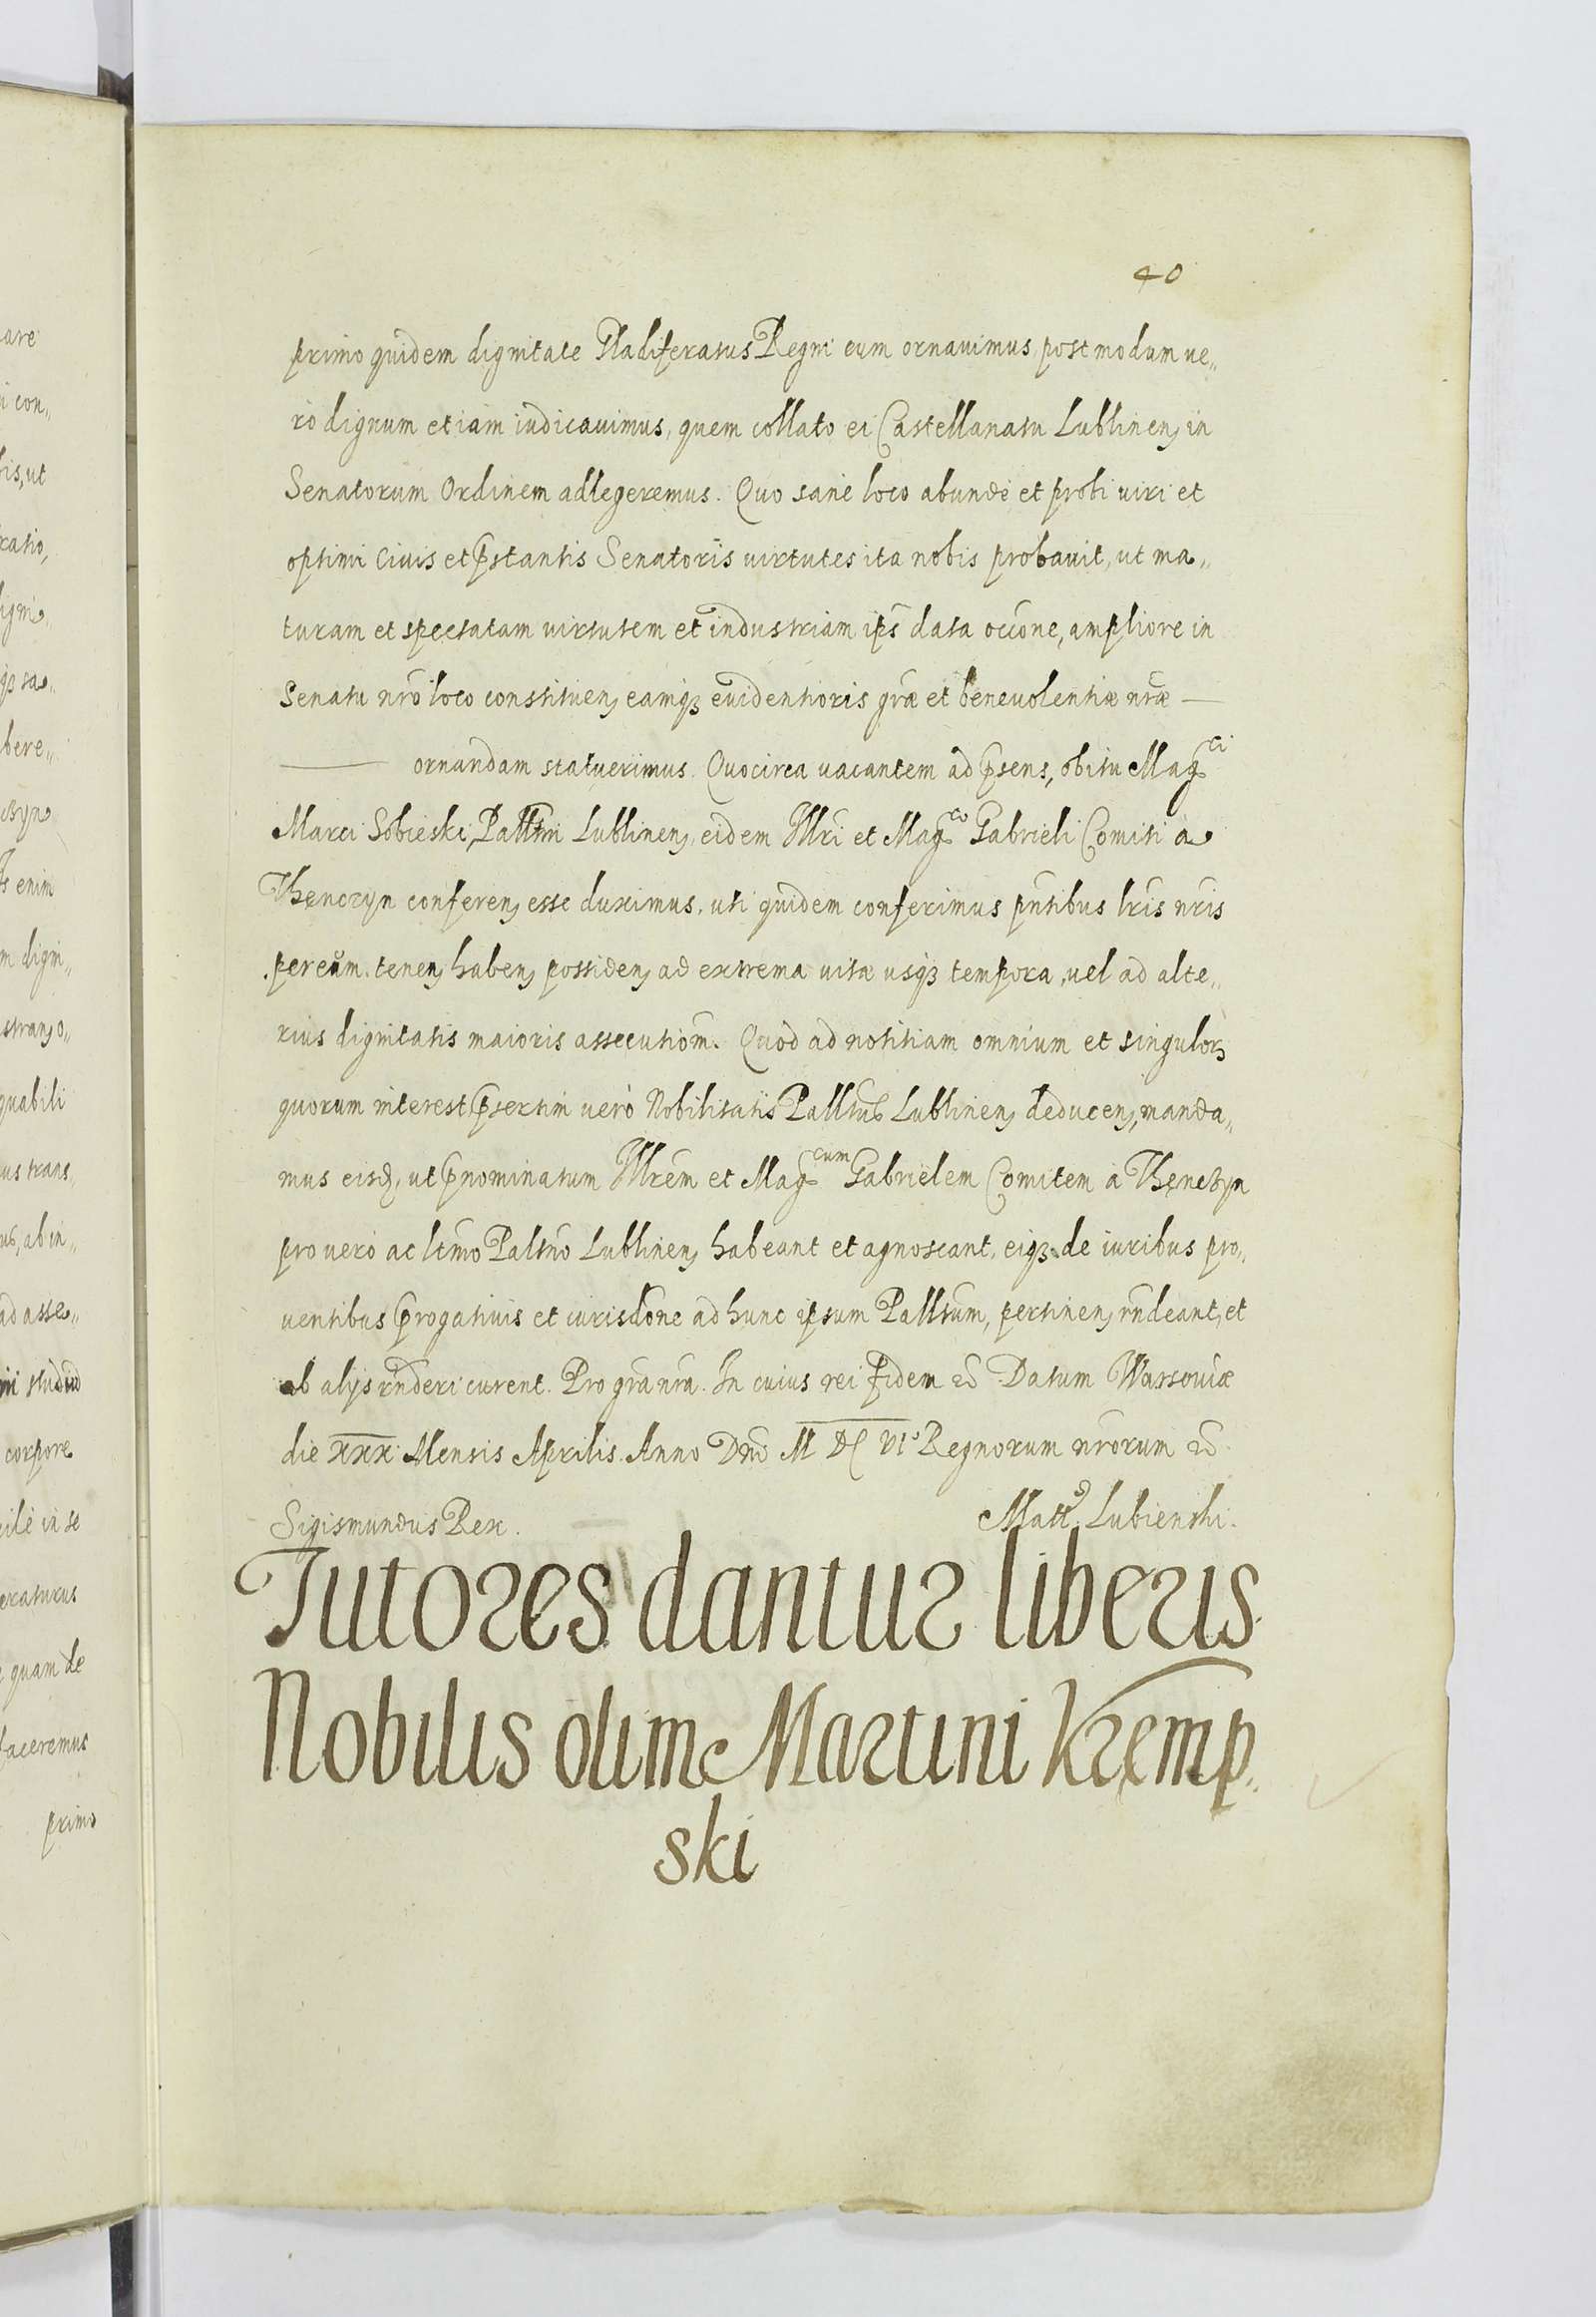 are
i con„
bis, ut
ratio,
digni„
bere„
czyn
Is enim
m digni„
quabili
us trans„
us, ab in„
ad asse„
ni studiū
corpore
cilè in se
eraturus
quam de
faceremus
primo
40
primo quidem dignitate Gladiferatus Regni eum ornauimus, postmodum ue„
rò dignum etiam iudicauimus, quem collato ei Castellanatu Lublinen, in
Senatorum Ordinem adlegeremus. Quo sanè loco abundè et probi uiri et
optimi Ciuis et p̄stantis Senatoris uirtutes ita nobis probauit, ut ma„
turam et spectatam uirtutem et industriam ips̄ data occōne, ampliore in
Senatu nrō loco constituen, eamqꝫ euidentioris grāe et beneuolentiæ nrāe —
— ornandam statuerimus. Quocirca uacantem ad p̄sens, obitu Mag^ci
Marci Sobieski, Palltni Lublinen, eidem Illri et Mag^co Gabrieli Comiti à
Thenczyn conferen, esse duximus, uti quidem conferimus pn̄tibus lrīs nrīs
per eum tenen, haben, possiden, ad extrema uitæ usqꝫ tempora, uel ad alte„
rius dignitatis maioris assecutiom̄. Quod ad notitiam omnium et singulorꝫ
quorum interest, p̄sertim uerò Nobilitatis Palltus̄ Lublinen, deducen, manda„
mus eisd, ut p̄nominatum Illrēm et Mag^cum Gabrielem Comitem à Thenczyn
pro uero ac ltm̄o Paltn̄o Lublinen, habeant et agnoscant, eiqꝫ de iuribus pro„
uentibus p̄rogatiuis et iurisdōne ad hunc ipsum Palltum, pertinen, rn̄deant, et
ab alijs rn̄deri curent. Pro grā nrā. In cuius rei fidem ēc Datum Warsouiæ
die XXX Mensis Aprilis. Anno Dn̄i M DC VI^o Regnorum nrōrum ēc
Sigismundus Rex. Matt^s Lubienski.
Tutores dantur liberis
Nobilis olim Martini Kremp„
ski